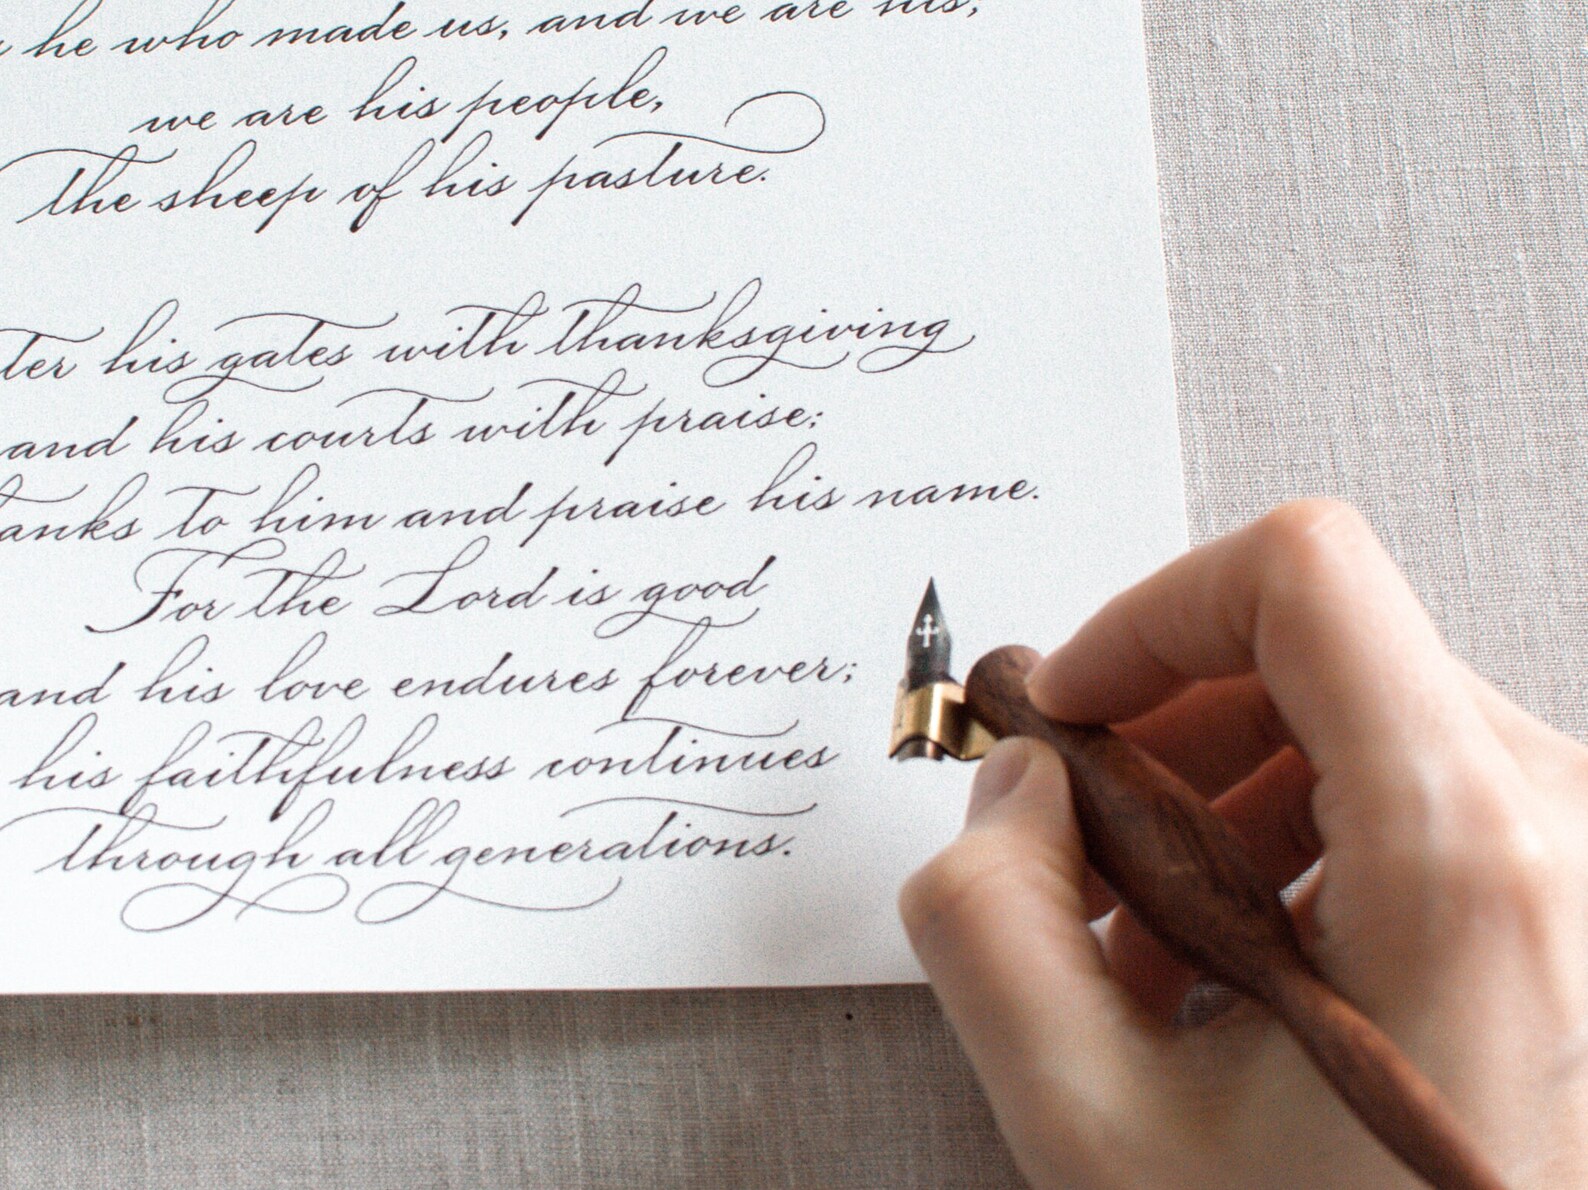 he who made us, and we are his,
we are his people,
the sheep of his pasture.
ter his gates with thanksgiving
and his courts with praise;
anks to him and praise his name.
For the Lord is good
and his love endures forever;
his faithfulness continues
through all generations.